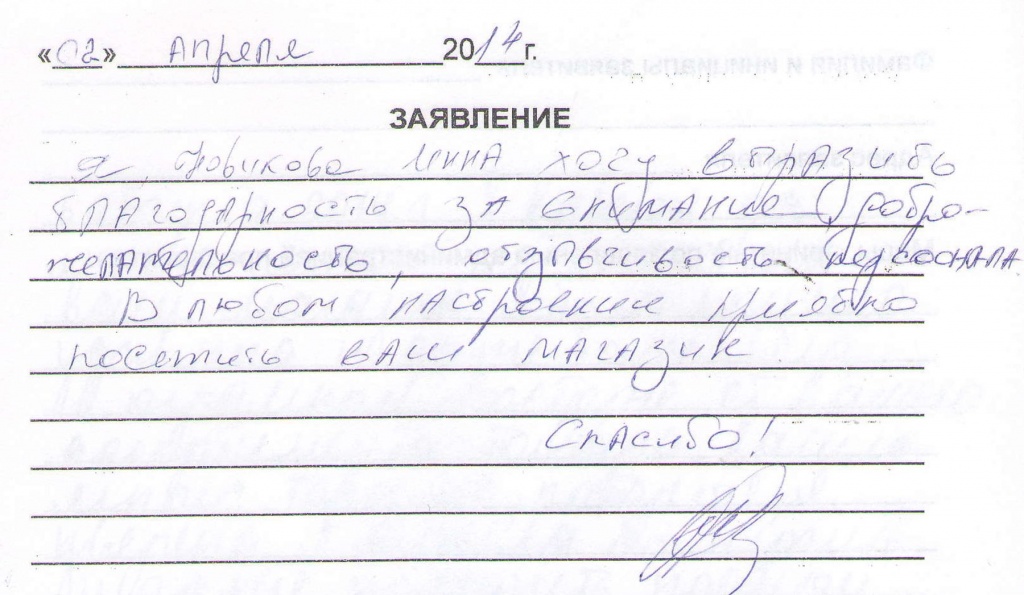 «02» апреля 2014 г.
ЗАЯВЛЕНИЕ
Я, Новикова Инна хочу выразить
благодарность за внимание, добро-
желательность, отзывчивость персонала.
В любом настроении приятно
посетить ваш магазин
Спасибо!